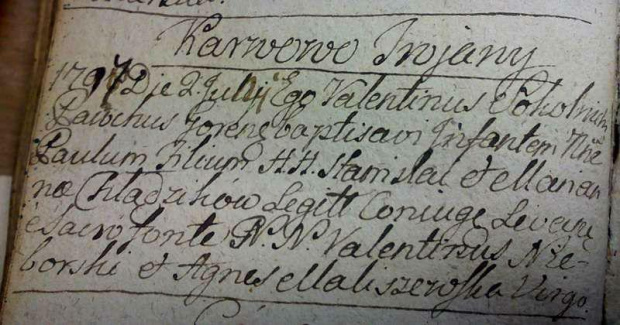 Karwowo Trojany
1797 Die 2 Julij Ego Valentinus
baptisavi Infantem Nne
Paulum Filium H.H. Stanislai et Marian
næ Chladzikow Legitt Coniugu Levan
e Sacro fonte N. N. Valentinus Nie-
borski et Agnes Maliszewska Virgo.